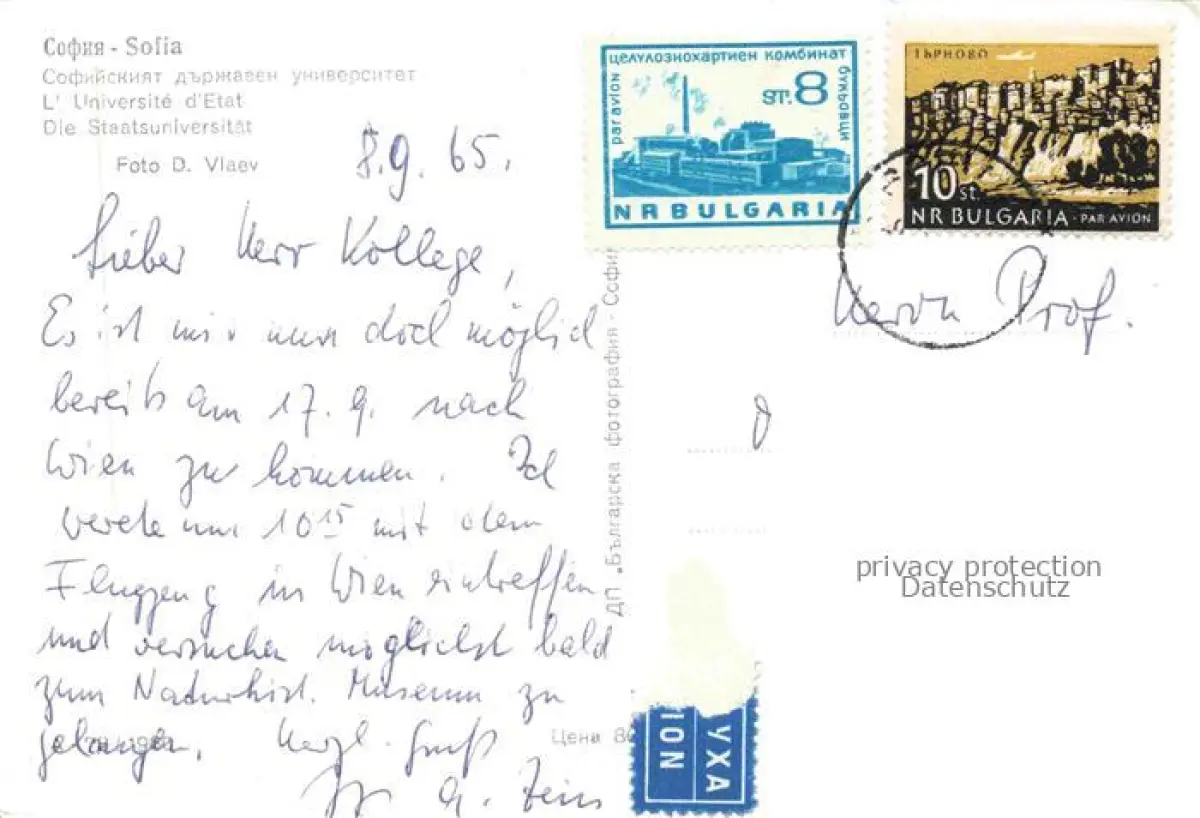 София - Sofia
Софийският държавен университет
L' Université d'Etat
Die Staatsuniversität
Foto D. Vlaev
8.9.65.
Lieber Herr Kollege,
Es ist mir nun doch möglich
bereits am 17.9. nach
Wien zu kommen. Ich
werde um 10 15 mit dem
Flugzeug in Wien eintreffen
und versuchen möglichst bald
zum Naturhist. Museum zu
gelangen. Herzl. Gruß
ДП „Българска фотография - Софи
Цени 8
целулозохартиен комбинат
par avion
букьовци
ST. 8
NR BULGARIA
ТЪРНОВО
10 st.
NR BULGARIA - PAR AVION
Herrn Prof.
privacy protection
Datenschutz
УХА
ION